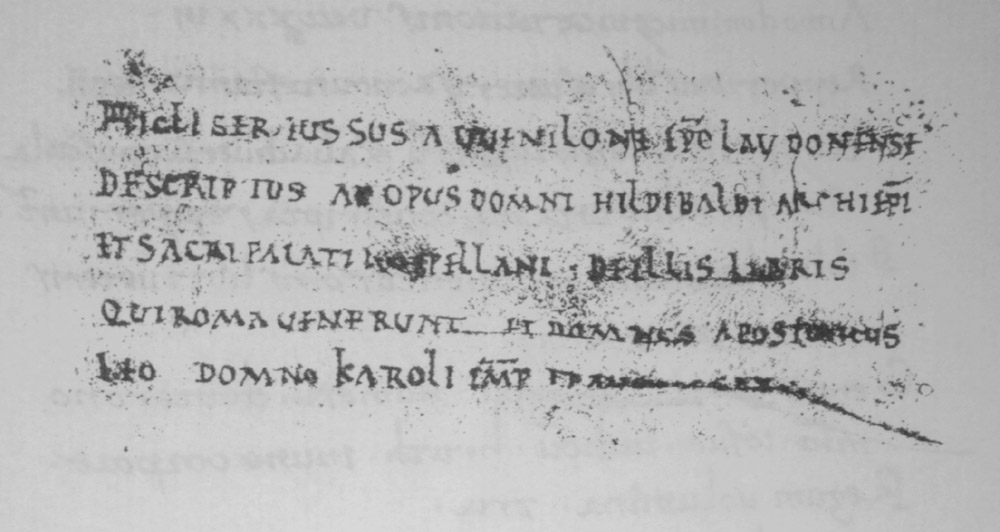 SER IUSSUS A UUENILONE EP̅E LAUDONENSE
DESCRIPTUS AD OPUS DOMNI HILDIBALDI ARCHIEP̅I
ET SACRI PALATI CAPELLANI DE ILLIS LIBRIS
QUI ROMA UENERUNT ET DOMNUS APOSTOLICUS
LEO DOMNO KAROLI IM̅P